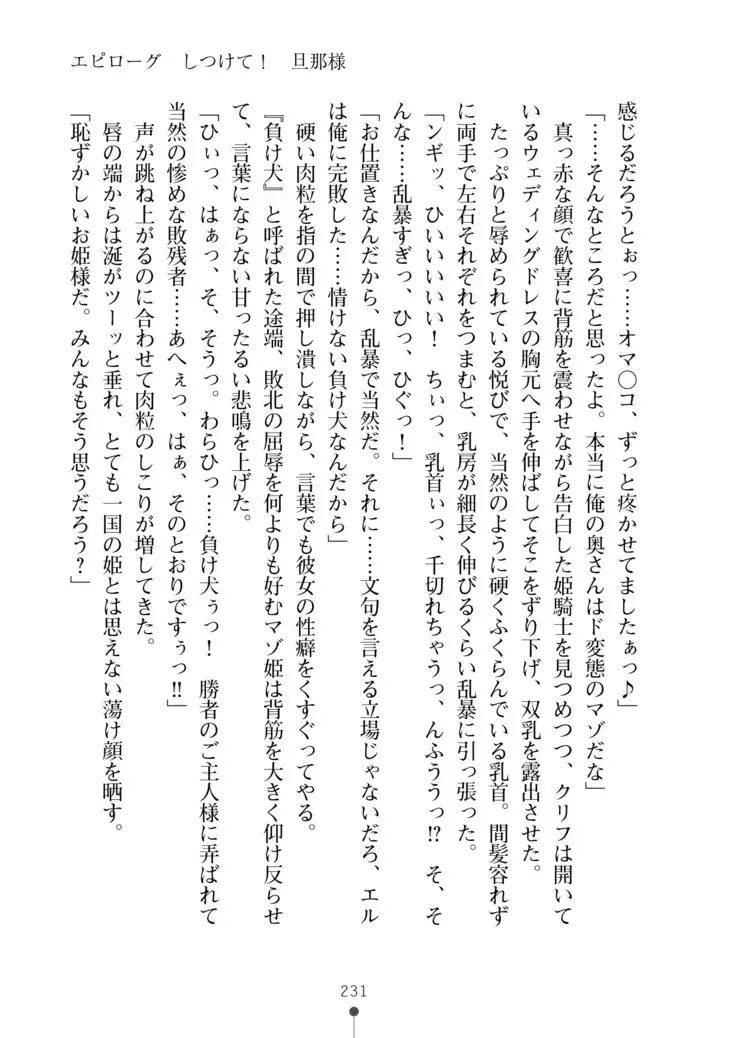 エピローグ　しつけて！　旦那様
感じるだろうとぉっ……オマ〇コ、ずっと疼かせてましたぁっ♪」
「……そんなところだと思ったよ。本当に俺の奥さんはド変態のマゾだな」
真っ赤な顔で歓喜に背筋を震わせながら告白した姫騎士を見つめつつ、クリフは開いて
いるウェディングドレスの胸元へ手を伸ばしてそこをずり下げ、双乳を露出させた。
たっぷりと辱められている悦びで、当然のように硬くふくらんでいる乳首。間髪容れず
に両手で左右それぞれをつまむと、乳房が細長く伸びるくらい乱暴に引っ張った。
「ンギッ、ひいいいいい！　ちぃっ、乳首ぃっ、千切れちゃうっ、んふううっ!?　そ、そ
んな……乱暴すぎっ、ひっ、ひぐっ！」
「お仕置きなんだから、乱暴で当然だ。それに……文句を言える立場じゃないだろ、エル
は俺に完敗した……情けない負け犬なんだから」
硬い肉粒を指の間で押し潰しながら、言葉でも彼女の性癖をくすぐってやる。
『負け犬』と呼ばれた途端、敗北の屈辱を何よりも好むマゾ姫は背筋を大きく仰け反らせ
て、言葉にならない甘ったるい悲鳴を上げた。
「ひぃっ、はぁっ、そ、そうっ。わらひっ……負け犬ぅっ！　勝者のご主人様に弄ばれて
当然の惨めな敗残者……あへぇっ、はぁ、そのとおりですぅっ!!」
声が跳ね上がるのに合わせて肉粒のしこりが増してきた。
唇の端からは涎がツーッと垂れ、とても一国の姫とは思えない蕩け顔を晒す。
「恥ずかしいお姫様だ。みんなもそう思うだろう？」
231